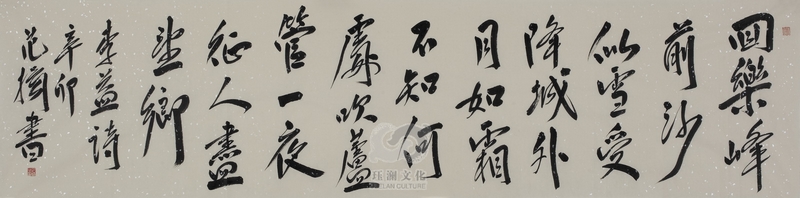 回樂峰
前沙
似雪受
降城外
月如霜
不知何
處吹蘆
管一夜
征人盡
望鄉
李益詩
辛卯
范
書
珏瀾文化
CULTURE